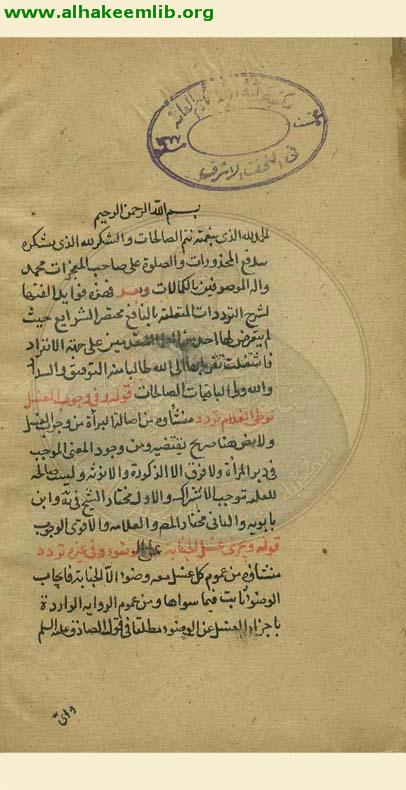 www.alhakeemlib.org
مكتبة آية الله الحكيم العامة
في النجف الاشرف
بسم الله الرحمن الرحيم
الحمد لله الذي بنعمته تتم الصالحات والشكر لله الذي بشكره
تندفع المحذورات والصلوة على صاحب المعجزات محمد
واله الموصوفين بالكمالات وبعد فهذه فوايد الفتها
لشرح الترددات المتعلقة بالنافع مختصر الشرايع حيث
لم يتعرض لها احد من على جهة الانفراد
فاشتغلت تقربا الى الله طالبا منه التوفيق والسداد
والله ولي الباقيات الصالحات قوله وفي وجوب الغسل
بوطي الغلام تردد منشأوه من اصالة البرأة من وجوب الغسل
ولا نص هنا صريح يقتضيه ومن وجود المعنى الموجب
في دبر المرأة ولا فرق الا الذكورة والانوثة وليست صالحة
للعلية توجب الاشتراك والاول مختار الشيخ في ية وابن
بابويه والثاني مختار المص والعلامة والاقوى الوجوب
قوله ويجزي غسل الجنابة عن الوضوء وفي غيره تردد
منشاؤه من عموم كل غسل معه وضوء الا الجنابة فايجاب
الوضوء ثابت فيما سواها ومن عموم الرواية الواردة
باجزاء الغسل عن الوضوء مطلقا في قول الصادق عليه السلم
واي